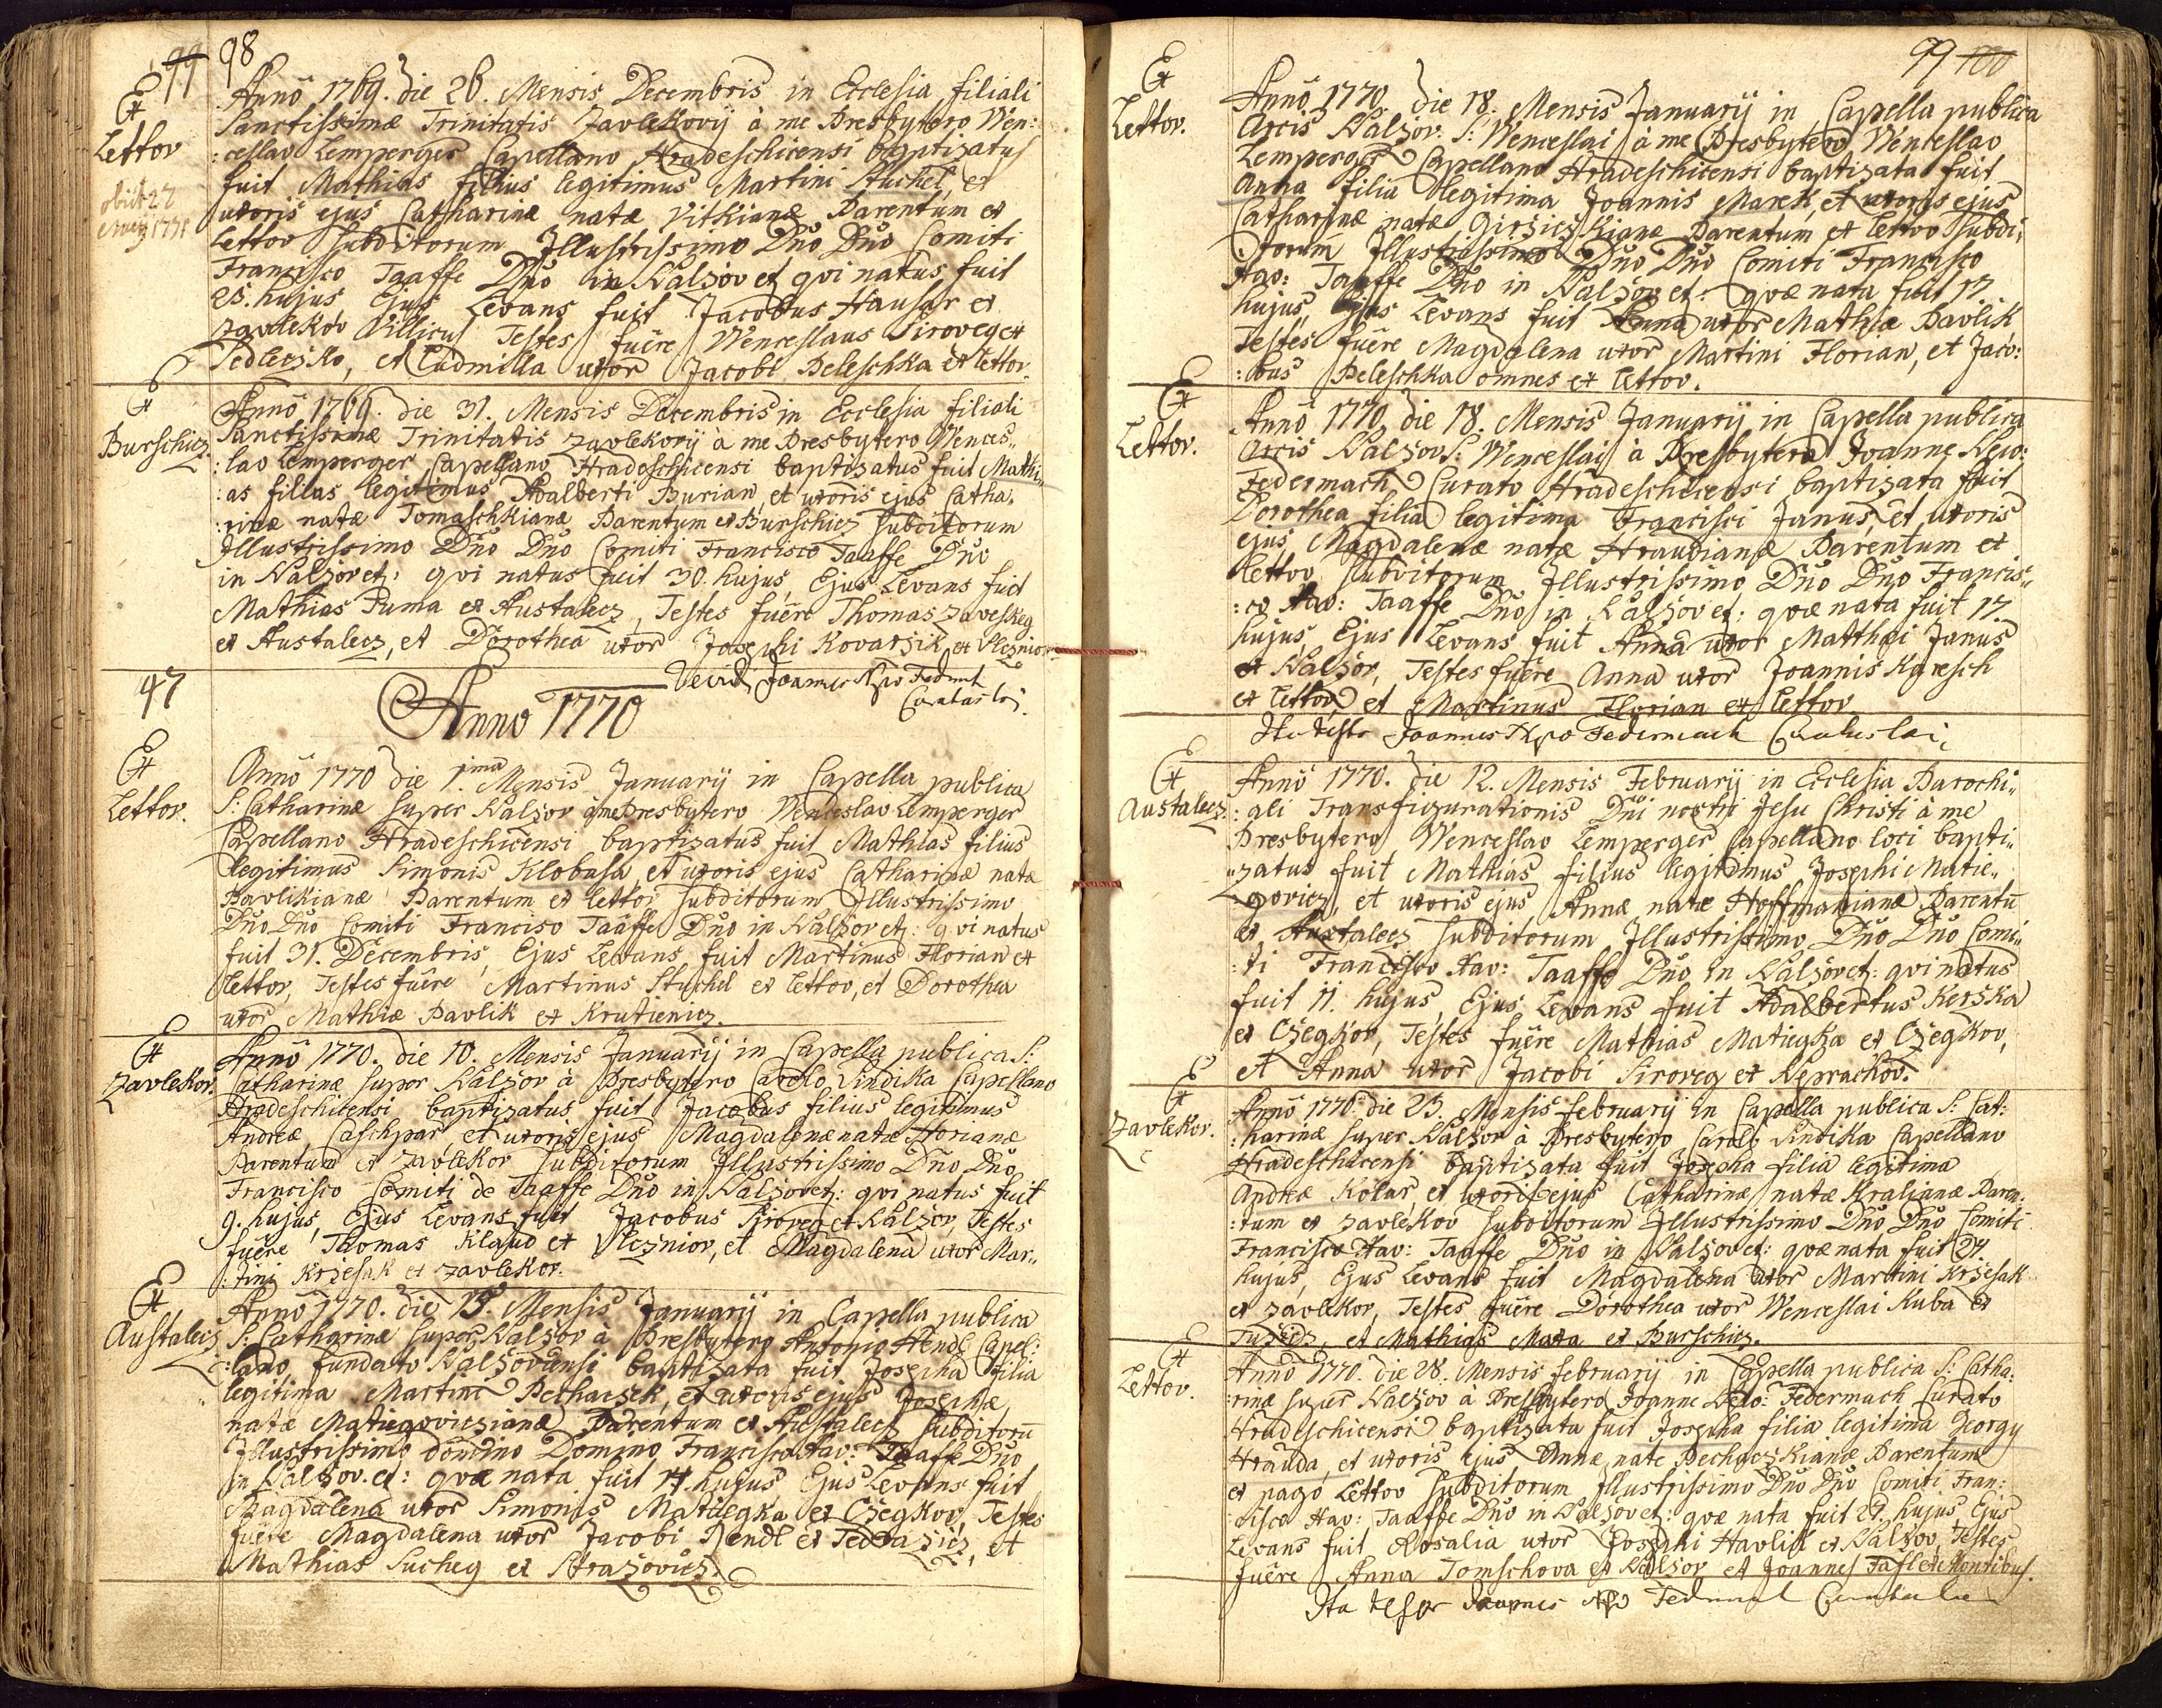 99 98
Ex
Lettov
obiit 27
1771
Anno 1769. die 26. Mensis Decembris in Ecclesia filiali
Sanctissimæ Trinitatis Zavlekovij à me Presbytero Wen:
:ceslao Lemperger Capellano Hradeschicensi baptizatus
fuit Mathias filius legitimus Martini Stuchel, et
uxoris ejus Catharinæ natæ Vitkianæ Parentum ex
Lettov subditorum Illustrissimo Dño Dño Comiti
Francisco Taaffe Dño in Nalzov etz qvi natus fuit
25. hujus Ejus Levans fuit Jacobus Hausar ex
Zavlekov Villicus Testes fuêre Wenceslaus Siroveg ex
Sedleczko, et Ludmilla uxor Jacobi Peleschka ex Lettov.
Ex
Burschicz
Anno 1769. die 31. Mensis Decembris in Ecclesia filiali
Sanctissimæ Trinitatis Zavlekovij à me Presbytero Wences„
:lao Lemperger Capellano Hradeschicensi baptizatus fuit Mathi„
:as filius legitimus Adalberti Burian, et uxoris ejus Catha„
:rinæ natæ Tomaschkianæ Parentum ex Burschicz subditorum
Illustrissimo Dño Dño Comiti Francisco Taaffe Dño
in Nalzov etz: qvi natus fuit 30. hujus, Ejus Levans fuit
Mathias Duma ex Austalecz, Testes fuêre Thomas Zaveskeg
ex Austalecz, et Dorothea uxor Josephi Kovarzik ex Vlcznior
47
Anno 1770
Ex
Lettov.
Anno 1770 die 1.ma Mensis Januarij in Capella publica
S: Catharinæ super Nalzov à me Presbytero Wenceslao Lemperger
Capellano Hradeschicensi baptizatus fuit Mathias filius
legitimus Simonis Klobasa, et uxoris ejus Catharinæ natæ
Pavlikianæ Parentum ex Lettov subditorum Illustrissimo
Dño Dño Comiti Francisco Taaffe Dño in Nalzov etz: qvi natus
fuit 31. Decembris, Ejus Levans fuit Martinus Florian ex
Lettov, Testes fuêre Martinus Stuchel ex Lettov, et Dorothea
uxor Mathiæ Pavlik ex Krutieniez.
Ex
Zavlekov.
Anno 1770. die 10. Mensis Januarij in Capella publica S:
Catharinæ super Nalzov à Presbytero Carolo Sindika Capellano
Hradeschicensi baptizatus fuit Jacobus filius legitimus
Andreæ Caschpar, et uxoris ejus Magdalenæ natæ Florianæ
Parentum ex Zavlekov subditorum Illustrissimo Dño Dño
Francisco Comiti de Taaffe Dño in Nalzov etz: qvi natus fuit
9. hujus, Ejus Levans fuit Jacobus Siroveg ex Nalzov, Testes
fuêre Thomas Klaud ex Vlcznior, et Magdalena uxor Mar„
:tini Krzesak ex Zavlekov.
Ex
Austalecz
Anno 1770. die 15. Mensis Januarij in Capella publica
S: Catharinæ super Nalzov à Presbytero Antonio Hendl Capel:
:lano fundato Nalzoviensi baptizata fuit Josepha filia
legitima Martini Pechaczek, et uxoris ejus Josephæ
natæ Matiegoviczianæ Parentum ex Austalecz subditorũ
Illustrissimo Domino Domino Francisco Xav: Taaffe Dño
in Nalzov. et: qvæ nata fuit 14. hujus Ejus Levans fuit
Magdalena uxor Simonis Matiegka ex Czegkov, Testes
fuêre Magdalena uxor Jacobi Rendl ex Tedrazicz, et
Mathias Sucheg ex Strazovicz.
99 100
Ex
Lettov.
Anno 1770. die 18. Mensis Januarij in Capella publica
Arcis Nalzov: S: Wenceslai à me Presbytero Wenceslao
Lemperger Capellano Hradeschicensi baptizata fuit
Anna filia legitima Joannis Marek, et uxoris ejus
Catharinæ natæ Girsiczkianæ Parentum ex Lettov subdi„
:torum Illustrissimo Dño Dño Comiti Francisco
Xav: Taaffe Dño in Nalzov et: qvæ nata fuit 17
hujus, Ejus Levans fuit Anna uxor Mathiæ Pavlik
Testes fuêre Magdalena uxor Martini Florian, et Jaco:
:bus Peleschka omnes ex Lettov.
Ex
Lettov.
Anno 1770. die 18. Mensis Januarij in Capella publica
Arcis Nalzov S: Wenceslai à Presbytero Joanne Nepo:
Federmach Curato Hradeschicensi baptizata fuit
Dorothea filia legitima Francisci Janus, et uxoris
ejus Magdalenæ natæ Hraudianæ Parentum ex
Lettov subditorum Illustrissimo Dño Dño Francis„
:co Xav: Taaffe Dño in Nalzov et: qvæ nata fuit 17
hujus Ejus Levans fuit Anna uxor Matthæi Janus
ex Nalzov, Testes fuêre Anna uxor Joannis Karesch
ex Lettov, et Martinus Florian ex Lettov
Ita testor Joannes Federmach
Ex
Austalecz.
Anno 1770. die 12. Mensis Februarij in Ecclesia Parochi„
:ali Transfigurationis Dñi nostri Jesu Christi à me
Presbytero Wenceslao Lemperger Capellano loci bapti„
„zatus fuit Mathias filius legitimus Josephi Matie„
:govicz, et uxoris ejus Annæ natæ Hoffmanianæ Parentũ
ex Austalecz subditorum Illustrissimo Dño Dño Comi„
:ti Francisco Xav: Taaffe Dño in Nalzov etz: qvi natus
fuit 11. hujus, Ejus Levans fuit Adalbertus Kerska
ex Czegkov, Testes fuêre Mathias Matiegka ex Czegkov,
et Anna uxor Jacobi Siroveg ex Neprachov.
Ex
Zavlekov.
Anno 1770. die 25. Mensis februarij in Capella publica S: Cat:
:harinæ super Nalzov à Presbytero Carolo Sindika Capellano
Hradeschicensi baptizata fuit Josepha filia legitima
Andreæ Kolar, et uxoris ejus Catharinæ natæ Kralianæ Paren:
:tum ex Zavlekov subditorum Illustrissimo Dño Dño Comiti
Francisco Xav: Taaffe Dño in Nalzov et: qvæ nata fuit 24.
hujus, Ejus Levans fuit Magdalena uxor Martini Krzesak
ex Zavlekov, Testes fuêre Dorothea uxor Wenceslai Kuba ex
et Mathias Maxa ex Burschicz.
Ex
Lettov.
Anno 1770. die 28. Mensis februarij in Capella publica S: Catha:
:rinæ super Nalzov à Presbytero Joanne Nepo: Federmach Curato
Hradeschicensi baptizata fuit Josepha filia legitima Georgy
Hrauda, et uxoris ejus Annæ natæ Pechaczkianæ Parentum
ex pago Lettov subditorum Illustrissimo Dño Dño Comiti Fran:
:cisco Xav: Taaffe Dño in Nalzov et: qvæ nata fuit 27. hujus Ejus
Levans fuit Rosalia uxor Josephi Havlik ex Nalzov, Testes
fuêre Anna Tomschova ex Nalzov et Joannes
Ita testor Joannes